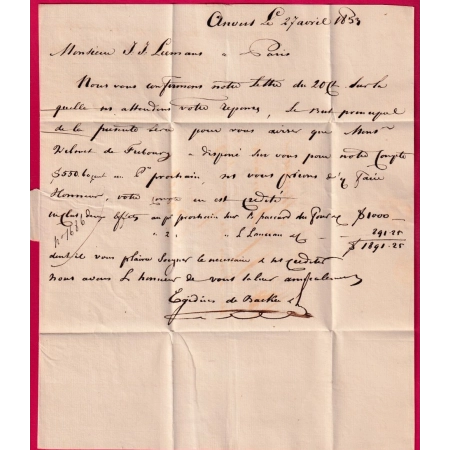 Anvers Le 27 avril 1853
Monsieur J J Lemans a Paris
Nous vous confirmons notre Lettre du 20 Ct Sur la
quelle ns attendons votre reponse, le But principal
de la présente sera pour vous aviser que Monsr
de Fribourg a disposé Sur vous pour notre Compte
$550. au Pr prochain, ns vous prions d'y faire
Honneur, votre compte en est credité
inclus deux effets au pr prochain Sur B $1000 —
" 2 " 891.25
$1891.25
No 1616
dont il vous plaira Soigner le necessaire & ns créditer
nous avons L honneur de vous saluer amicalement
Egidius de Backer